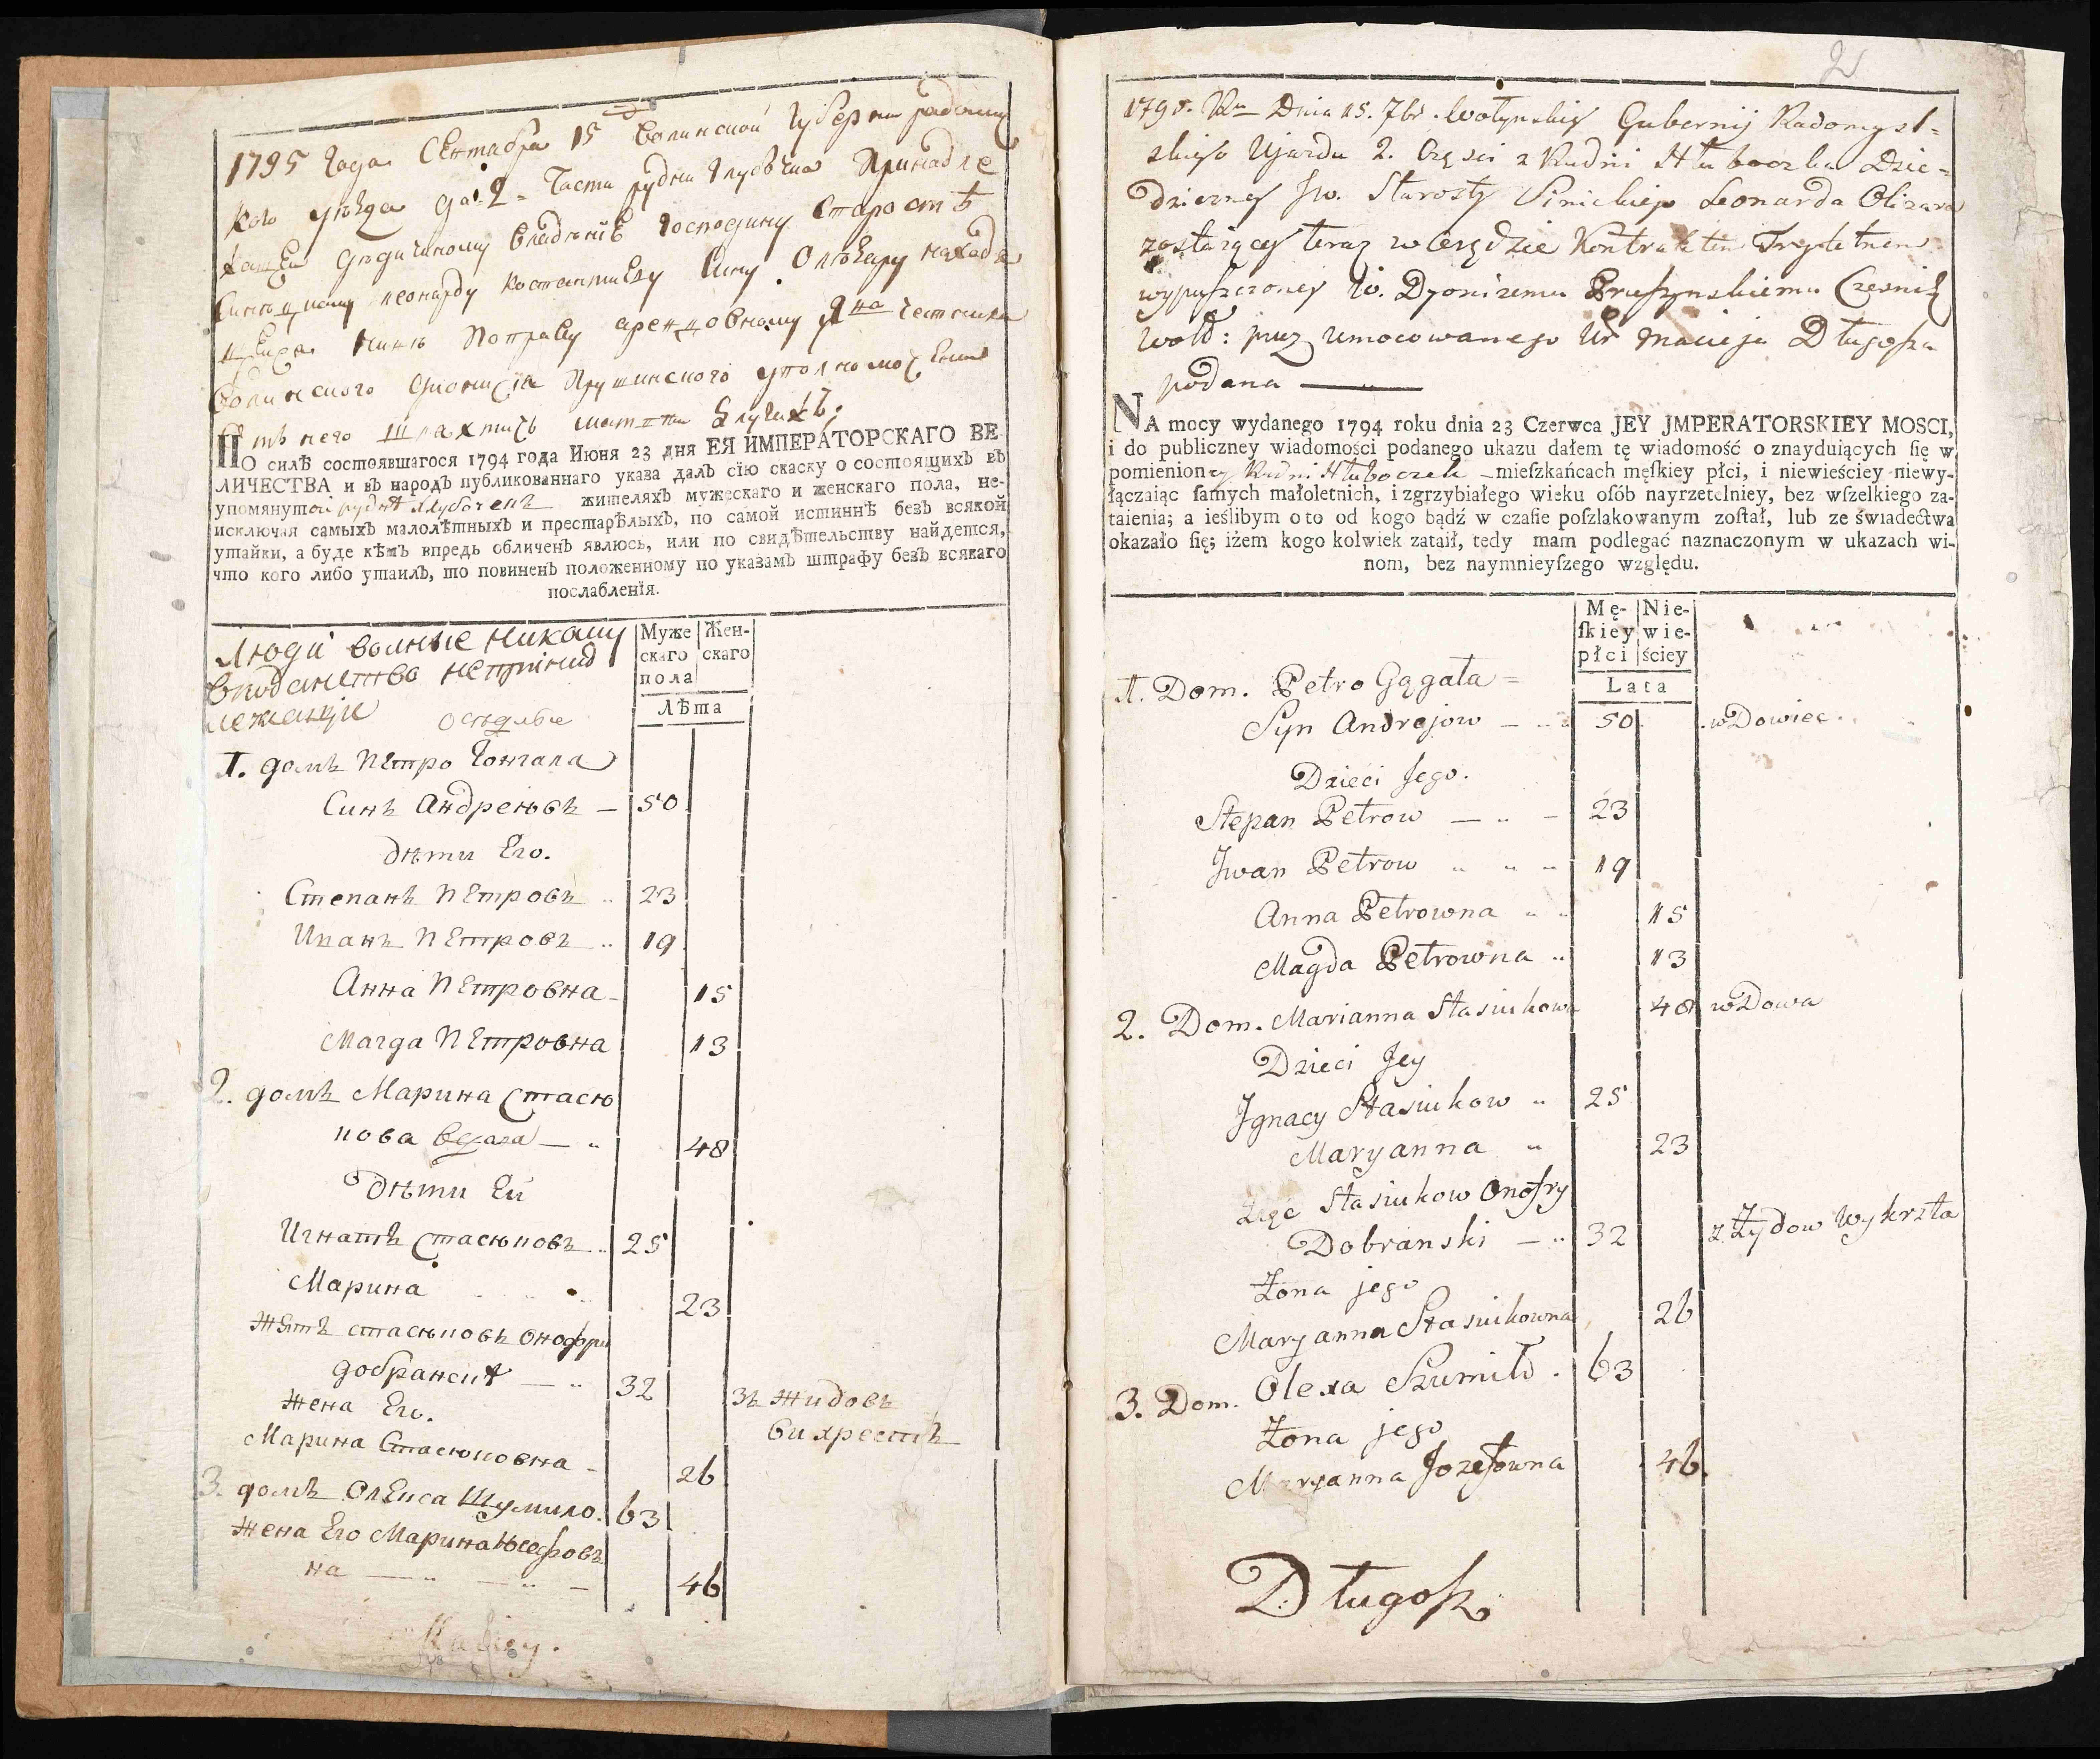 1795 года Сентабра 15 Волинской Губернии радомиш
кого уезда 2. Части рудни Глубочка Принадле
господину Старосте
Леонарду Сину Олизару
Чину По праву арендовному
Волинского Дионисия Прушинского
него Шляхтичъ
ПО силѣ состоявшагося 1794 года Июня 23 дня ЕЯ ИМПЕРАТОРСКАГО ВЕ-
ЛИЧЕСТВА и вЪ народЪ публикованнаго указа далЪ сїю скаску о состоящихЪ вЪ
упомянутой руднѣ Глубочекъ жителяхЪ мужескаго и женскаго пола, не-
исключая самыхЪ малолѣтныхЪ и престарѣлыхЪ, по самой истиннѣ безЪ всякой
утайки, а буде кѣмЪ впредь обличенЪ явлюсь, или по свидѣтельству найдется,
что кого либо утаилЪ, то повиненЪ положенному по указамЪ штрафу безЪ всякаго
послабленїя.
Люди волные никому
в поданство непринад
лежащие оседлые
Муже Жен-
скаго скаго
пола
Лѣта
1. домъ Петро Гонгала
Синъ Андреювъ — 50
дѣти Его.
Степанъ Петровъ .. 23
Иванъ Петровъ .. 19
Анна Петровна - 15
Магда Петровна 13
2. домъ Марина Стасю
кова вдова — .. 48
дѣти Ей
Игнатъ Стасюковъ .. 25
Марина 23
Жятъ стасюковъ Онофри
добранскій — .. 32 зъ жидовъ
Жена Его. вихрестъ
Марина Стасюковна - 26
3. домъ Олекса Шумило. 63
Жена Его Марина Юсефовъ
на — .. — .. — 46
2
1795. Ru Dnia 15. 7br. Wołynskiey Gubernij Radomysl-
skiego Ujazdu 2. Części z Rudni Hłuboczka Dzie-
dziczney Jw. Starosty Pinickiego Leonarda Olizara
zostaiącey teraz w Kontraktem Trzyletnem
wypuszczoney W. Dyonizemu Pruszynskiemu Czesnik
woł: przez umocowanego Ur Macieja Długosza
podana —
NA mocy wydanego 1794 roku dnia 23 Czerwca JEY JMPERATORSKIEY MOSCI,
i do publiczney wiadomości podanego ukazu dałem tę wiadomość o znayduiących ſię w
pomienioney Rudni Hłuboczek – mieſzkańcach męſkiey płci, i niewieściey niewy-
łączaiąc ſamych małoletnich, i zgrzybiałego wieku oſób nayrzetelniey, bez wſzelkiego za-
taienia; a ieślibym o to od kogo bądź w czaſie poſzlakowanym zoſtał, lub ze świadectwa
okazało ſię; iżem kogo kolwiek zataił, tedy mam podlegać naznaczonym w ukazach wi-
nom, bez naymnieyſzego względu.
Mę- Nie-
ſkiey wie-
płci ściey
Lata
1. Dom. Petro Gągała =
Syn Andrejow — .. 50 wdowiec.
Dzieci Jego.
Stepan Petrow — .. — 23
Jwan Petrow .. .. .. 19
Anna Petrowna .. .. 15
Magda Petrowna .. 13
2. Dom. Marianna Stasiukowa 48 wdowa
Dzieci Jey
Jgnacy Stasiukow .. 25
Maryanna .. 23
Zięc Stasiukow Onofry
Dobranski — .. 32 z Żydow Wykrzta
Żona jego
Maryanna Stasiukowna 26
3. Dom. Olexa Szumiło. 63
Żona jego
Maryanna Jozefowna 46
Długosz